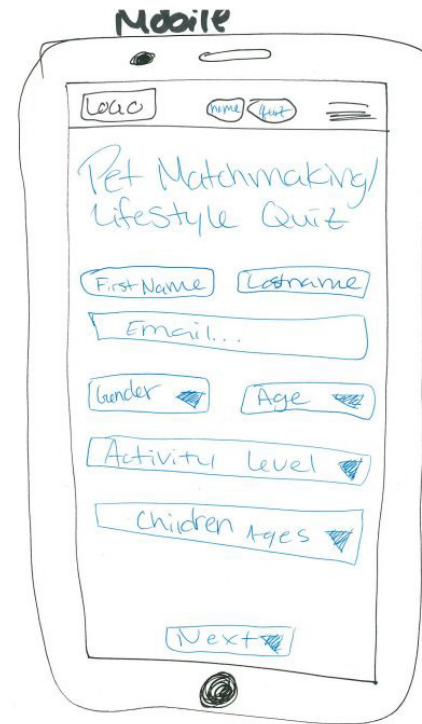 Mobile
Logo Home Quiz
Pet Matchmaking/
Lifestyle Quiz
First Name Lastname
Email...
Gender Age
Activity Level
Children Ages
Next